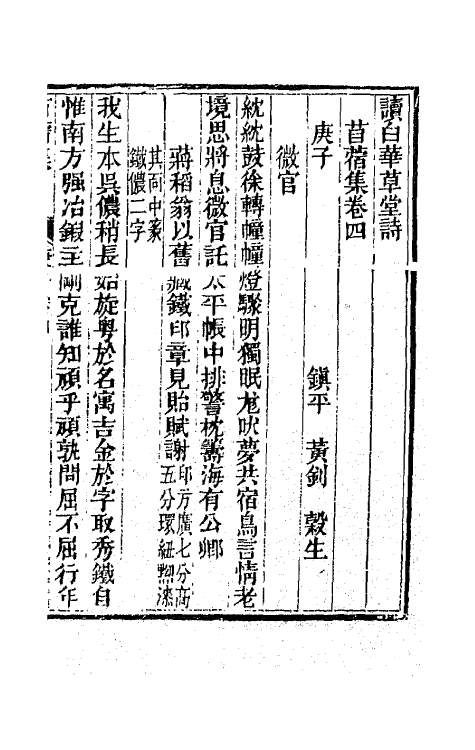 讀白華草堂詩
苜蓿集卷四
鎮平 黃釗 穀生
庚子
微官
紞紞鼓徐轉幢幢燈驟明獨眠尨吠夢共宿鳥言情老
境思將息微官託太平帳中排警枕籌海有公卿
蔣稻翁以舊藏鐵印章見貽賦謝印方廣七分高
五分環紐黝漆
其面中篆
鐵儂二字
我生本吳儂稍長始旋粵於名寓吉金於字取秀鐵自
惟南方强冶鍜王剛克誰知頑乎頑孰問屈不屈行年